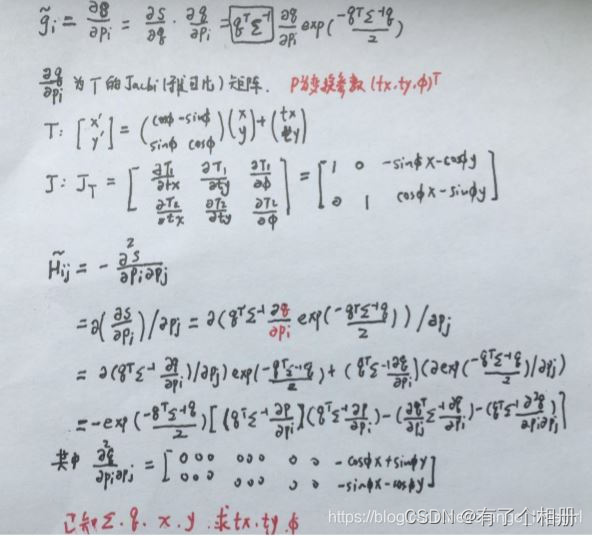 g̃i = ∂q/∂pi = ∂s/∂q · ∂q/∂pi = qᵀΣ⁻¹ ∂q/∂pi exp(-qᵀΣ⁻¹q/2)
∂q/∂pi 为T的Jacbi(雅可比)矩阵. P为变换参数(tx,ty,ϕ)ᵀ
T: [x' y'] = (cosϕ -sinϕ sinϕ cosϕ)(x y)+(tx ty)
J: J_T = [∂T1/∂tx ∂T1/∂ty ∂T1/∂ϕ ∂T2/∂tx ∂T2/∂ty ∂T2/∂ϕ] = [1 0 -sinϕx-cosϕy 0 1 cosϕx-sinϕy]
H̃ij = - ∂²s/∂pi∂pj
= ∂(∂s/∂pi)/∂pj = ∂(qᵀΣ⁻¹ ∂q/∂pi exp(-qᵀΣ⁻¹q/2))/∂pj
= ∂(qᵀΣ⁻¹ ∂q/∂pi)/∂pj) exp(-qᵀΣ⁻¹q/2) + (qᵀΣ⁻¹∂q/∂pi)(∂exp(-qᵀΣ⁻¹q/2)/∂pj)
= -exp(-qᵀΣ⁻¹q/2)[(qᵀΣ⁻¹ ∂p/∂pi)(qᵀΣ⁻¹ ∂p/∂pj)-(∂qᵀ/∂pj Σ⁻¹ ∂q/∂pi)-(qᵀΣ⁻¹ ∂²q/∂pi∂pj)]
其中 ∂²q/∂pi∂pj = [000 000 00 -cosϕx+sinϕy 000 000 00 -sinϕx-cosϕy]
已知Σ.q.x.y.求tx.ty.ϕ
CSDN @有了个相册